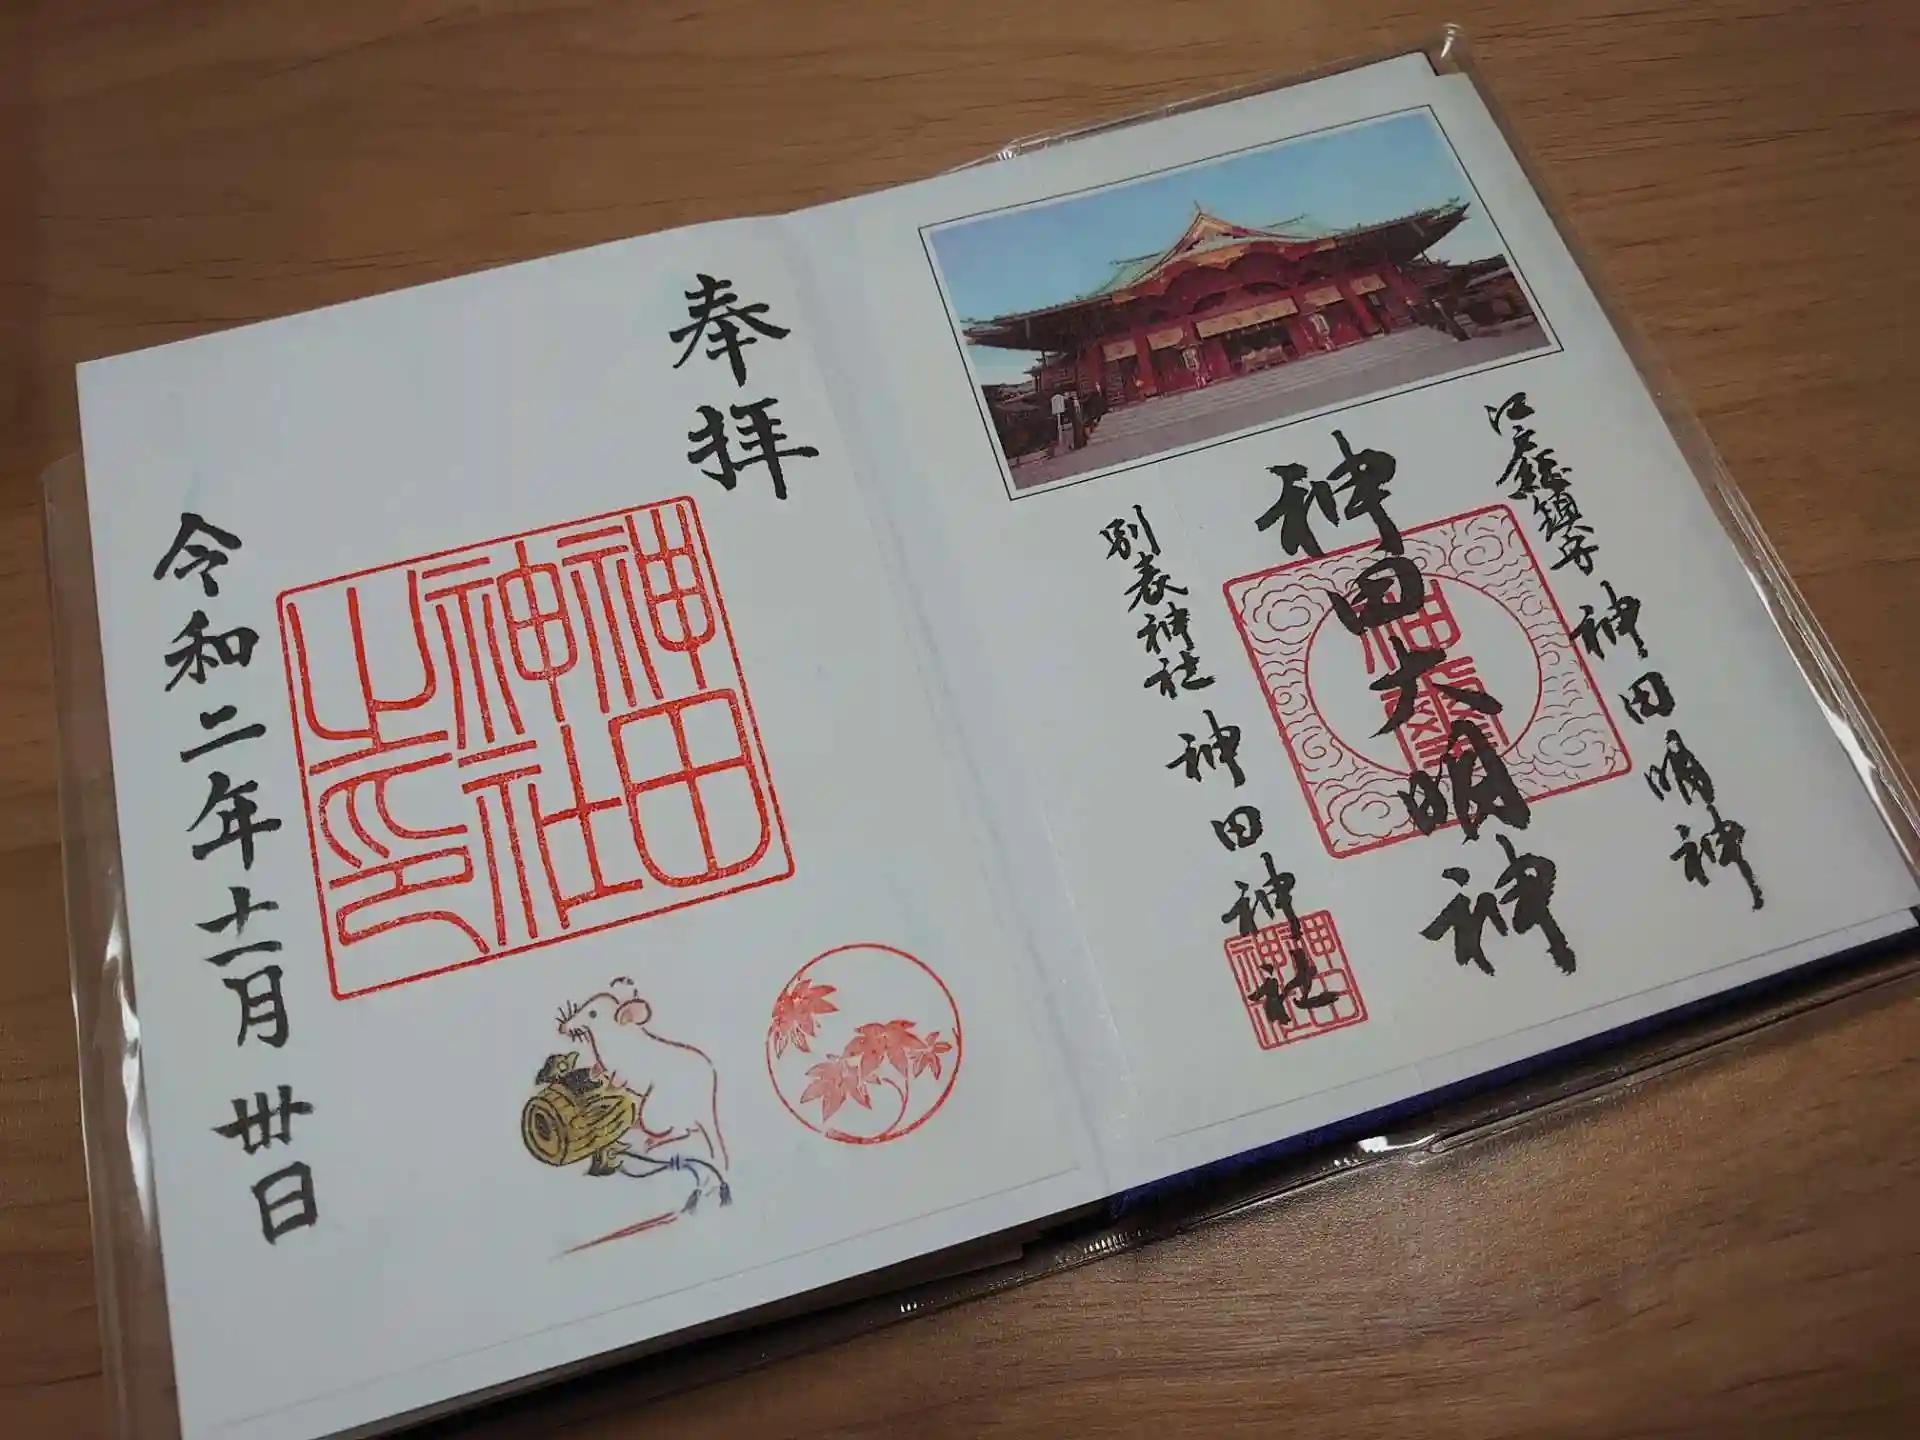 江戸総鎮守 神田明神
神田大明神
別表神社 神田神社
神田神社
奉拝
神田神社之印
令和二年十一月 丗日